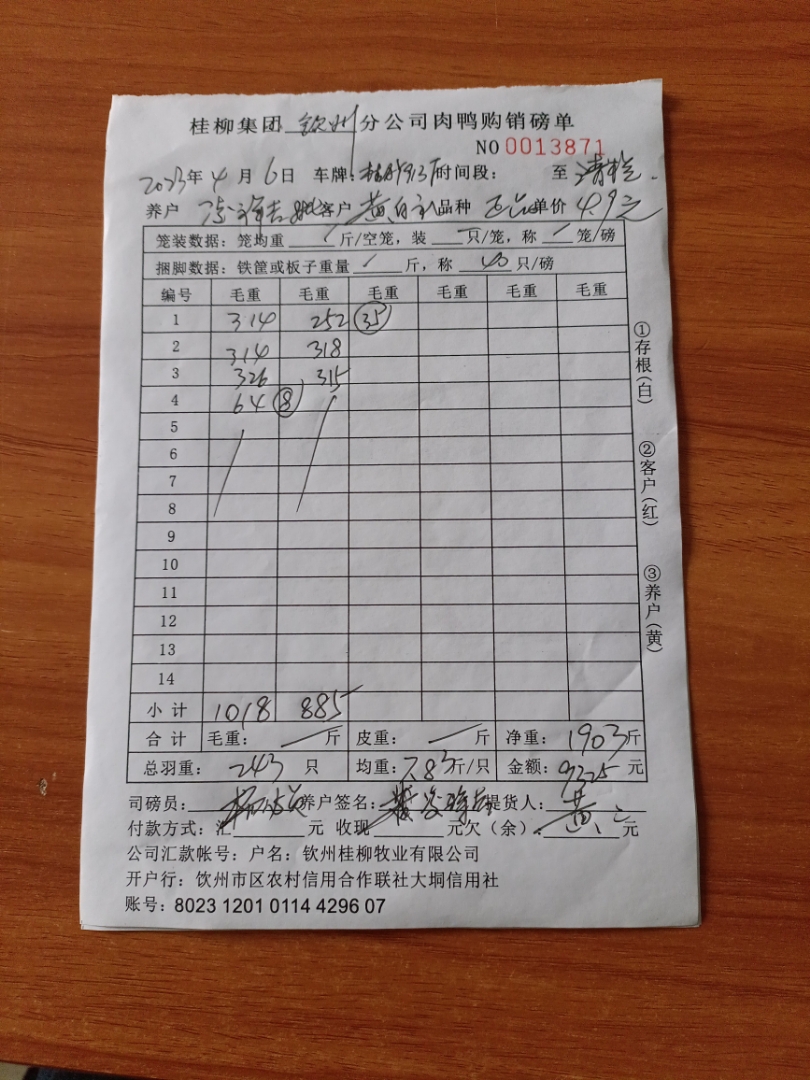 桂柳集团 钦州 分公司肉鸭购销磅单
NO 0013871
2023年 4 月 6 日 车牌: 时间段: 至
养户 客户 品种 单价 4.9元
笼装数据: 笼均重 / 斤/空笼, 装 只/笼, 称 / 笼/磅
捆脚数据: 铁筐或板子重量 / 斤, 称 40 只/磅
编号 毛重 毛重 毛重 毛重 毛重 毛重
1 314 252 35
2 314 318
3 326 315
4 64 8
5
6
7
8
9
10
11
12
13
14
小 计 1018 885
合 计 毛重: 斤 皮重: 斤 净重: 1903斤
总羽重: 243 只 均重: 7.83斤/只 金额: 9325 元
司磅员: 养户签名: 提货人: 黄
付款方式: 汇 元 收现 元欠(余) 元
公司汇款帐号: 户名: 钦州桂柳牧业有限公司
开户行: 钦州市区农村信用合作联社大垌信用社
账号: 8023 1201 0114 4296 07
①存根(白)
②客户(红)
③养户(黄)